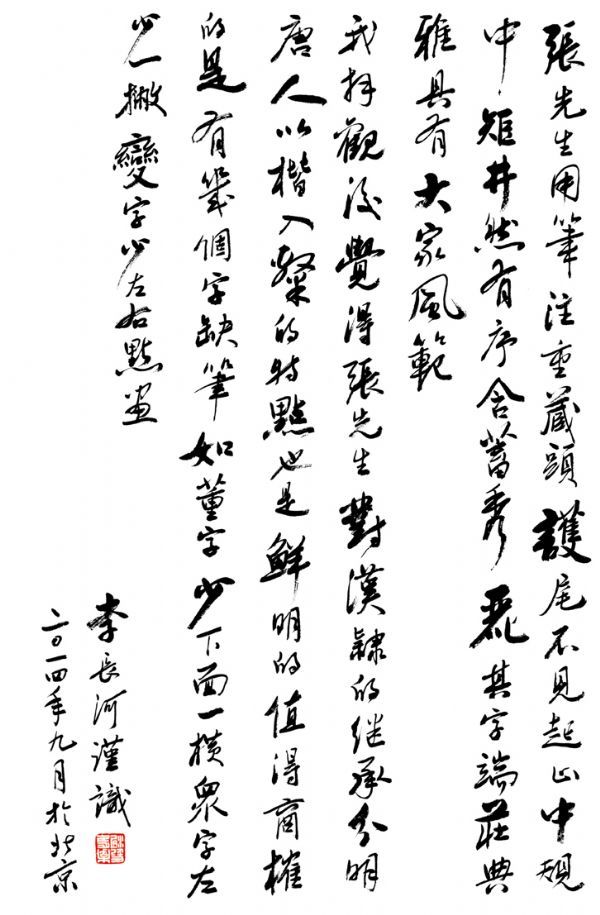 張先生用筆注重藏頭護尾不見起止中規
中矩井然有序含蓄秀麗其字端莊典
雅具有大家風範
我拜觀後覺得張先生對漢隸的继承分明
唐人以楷入隸的特點也是鮮明的值得商榷
的是有幾個字缺筆如董字少下面一橫眾字左
少一撇變字少左右點畫
李長河謹識
二〇一四年九月於北京